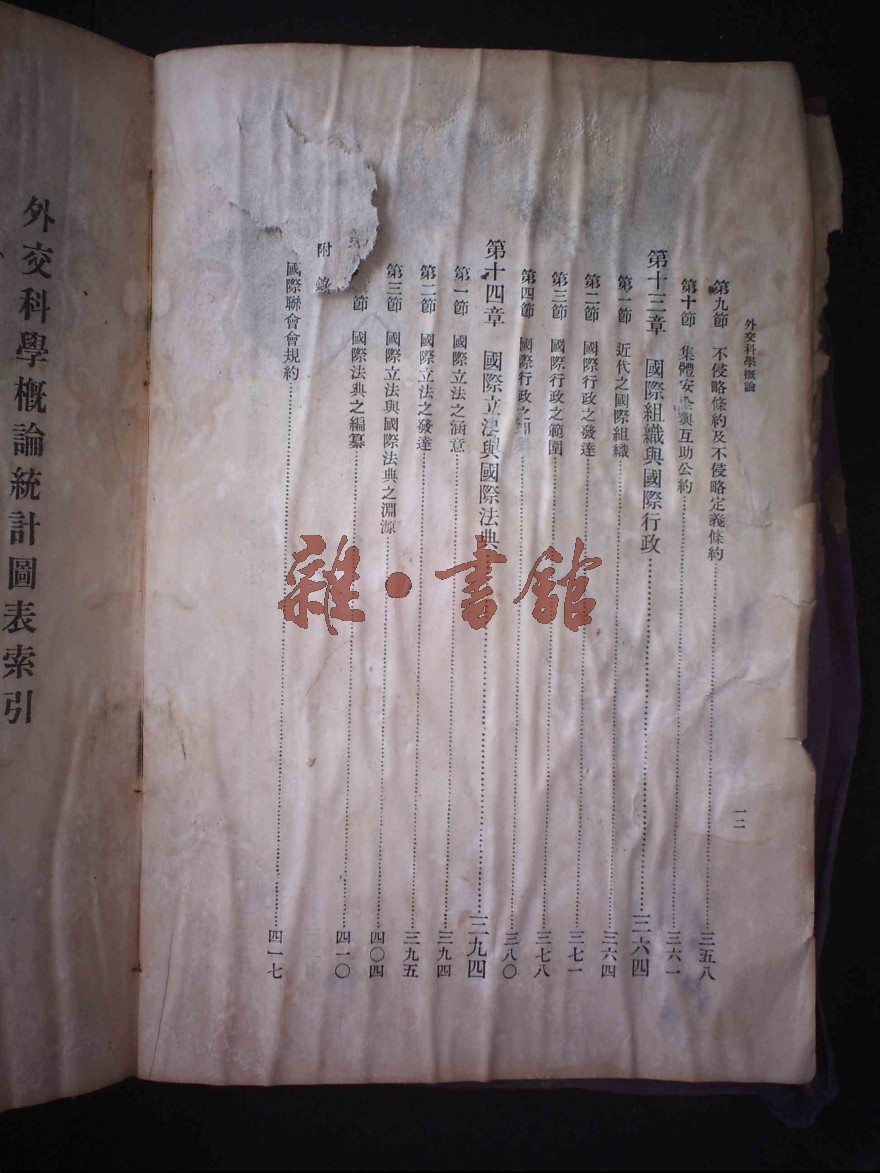 外交科學概論
一二
第九節 不侵略條約及不侵略定義條約……三五八
第十節 集體安全與互助公約……三六一
第十三章 國際組織與國際行政……三六四
第一節 近代之國際組織……三六四
第二節 國際行政之發達……三七一
第三節 國際行政之範圍……三七八
第四節 國際行政之……三八〇
第十四章 國際立法與國際法典……三九四
第一節 國際立法之涵意……三九四
第二節 國際立法之發達……三九五
第三節 國際立法與國際法典之淵源……四〇四
節 國際法典之編纂……四一〇
附錄
國際聯會會規約……四一七
外交科學概論統計圖表索引
雜·書館